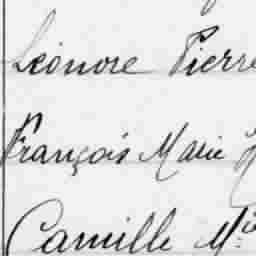 Léonore Pierre
François Marie
Camille M